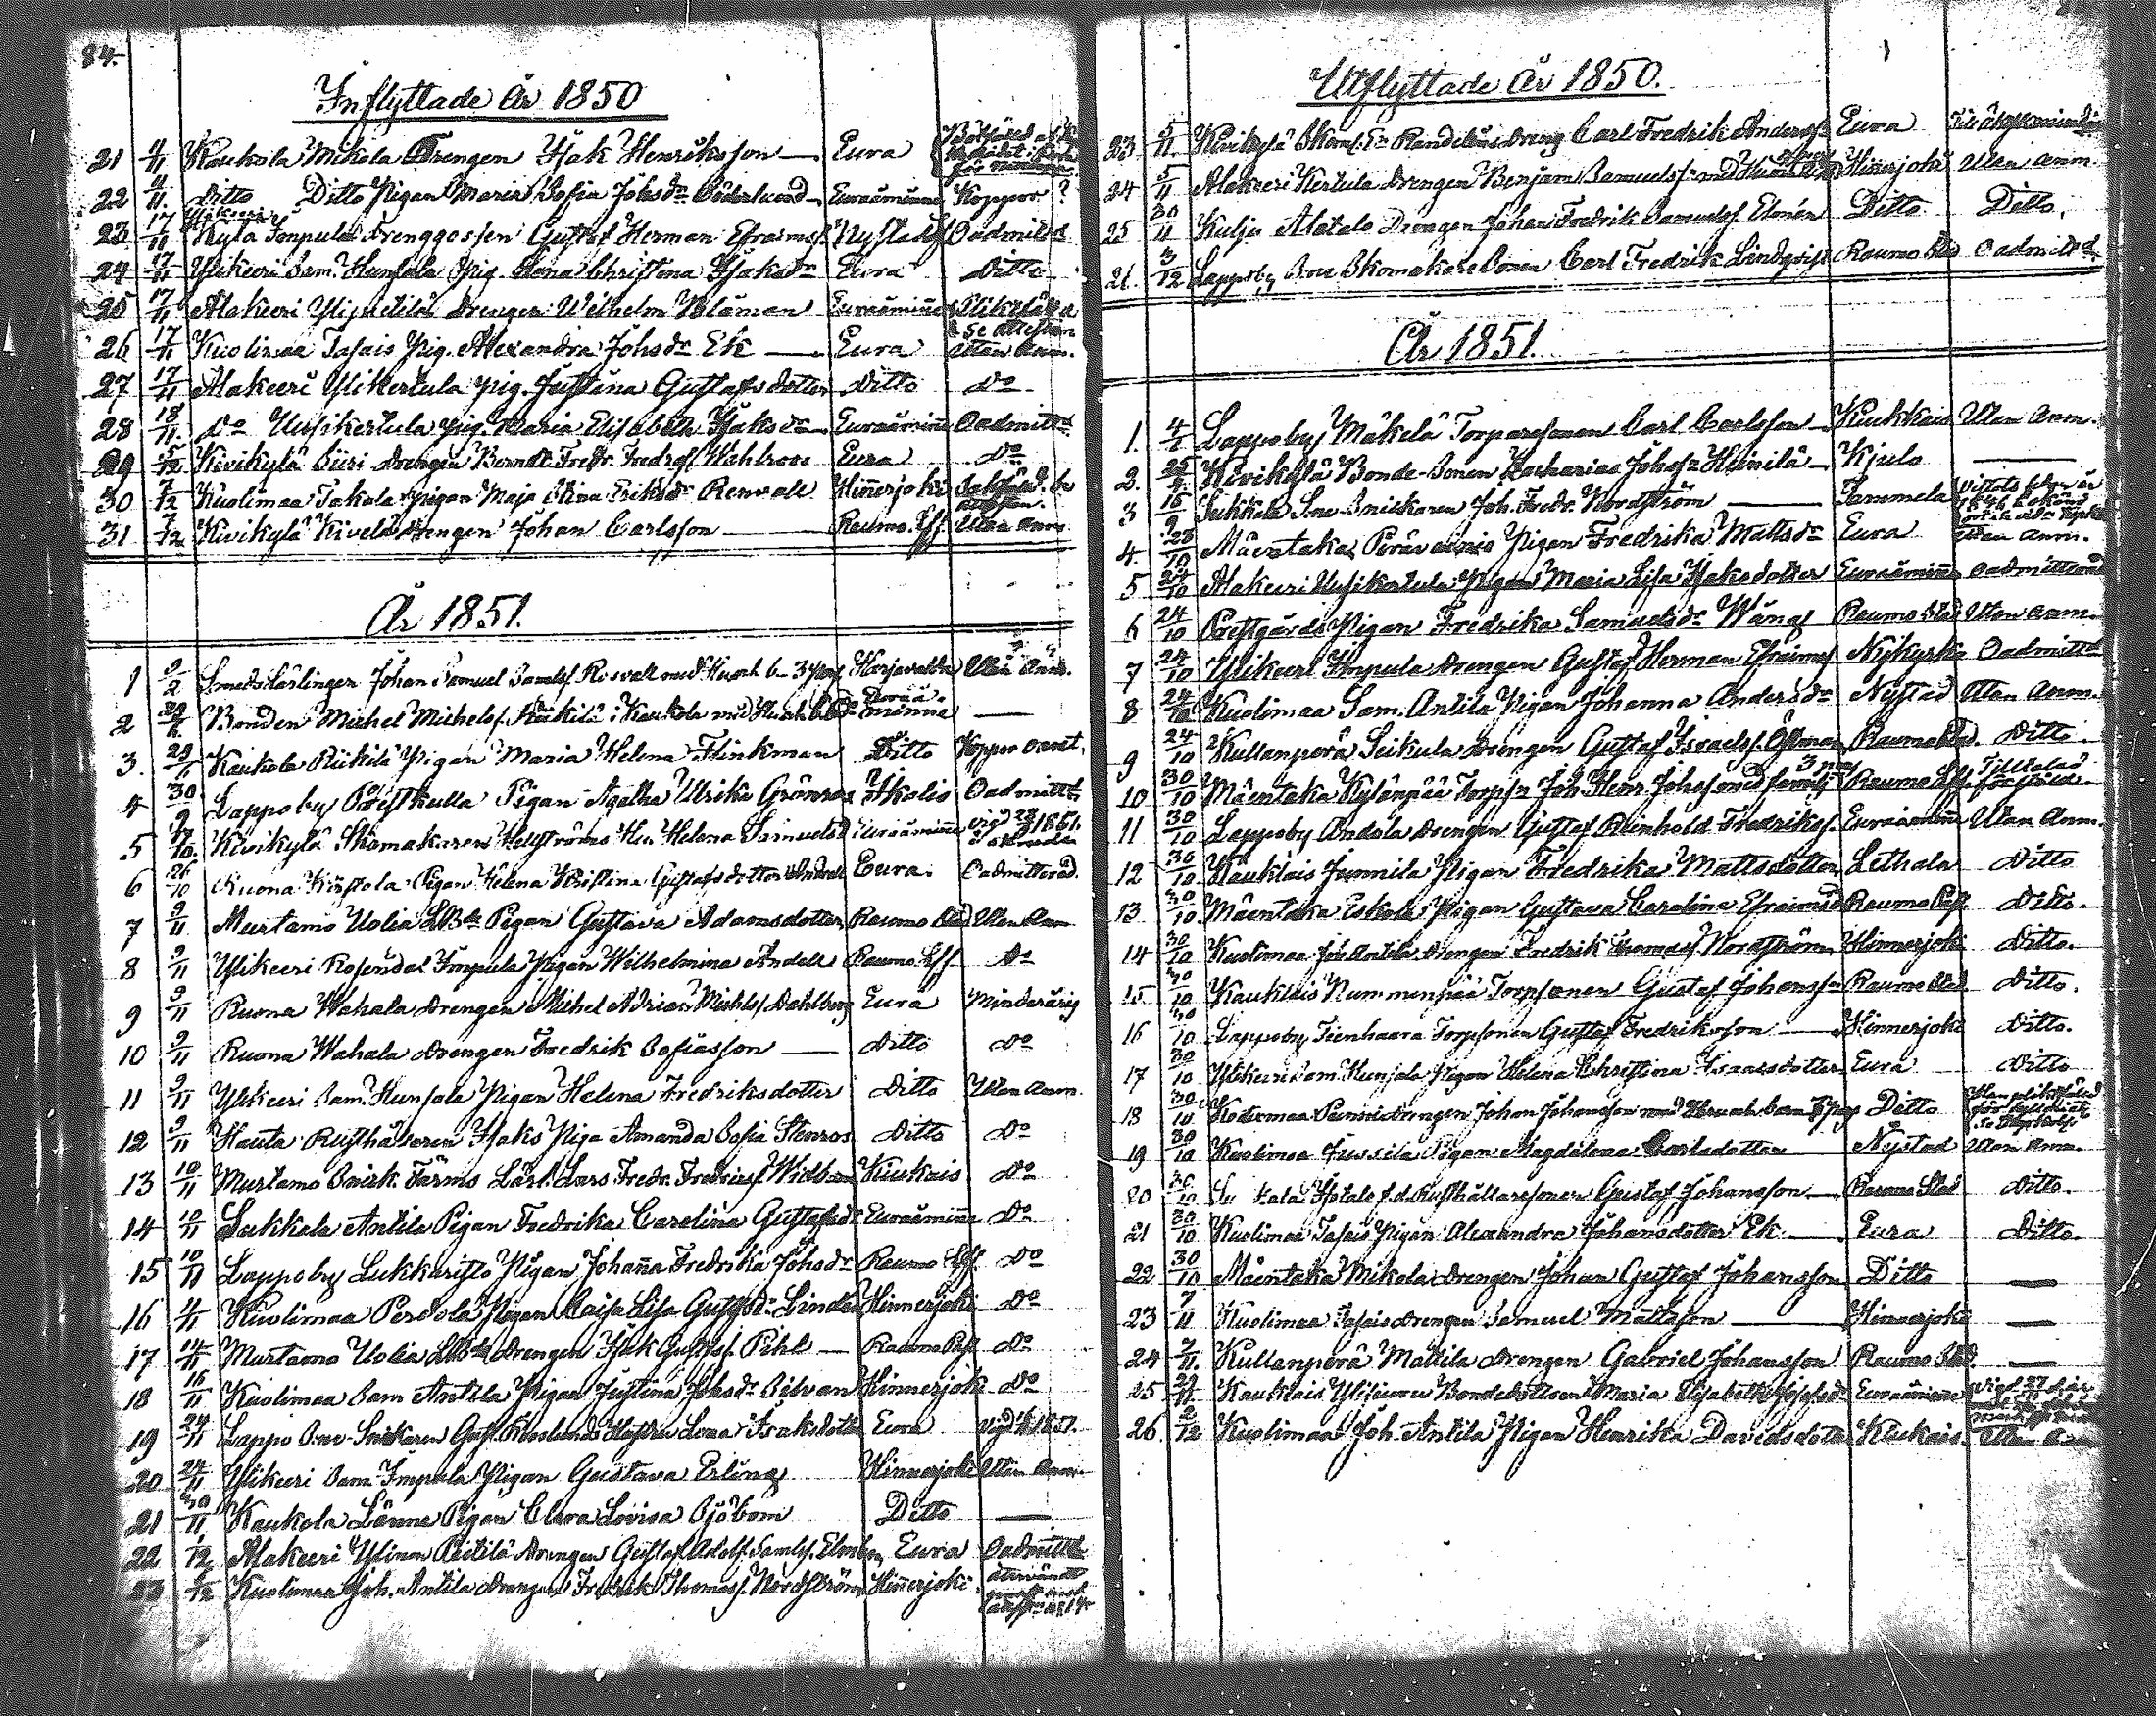 84.
Inflyttade År 1850
21 4/11 Kaukola Mikola Drengen Isak Henriksson — Eura
22 4/11. Ditto Ditto Pigan Maria Sofia Johsdr Söderlund Euraåminne Koppor ?
23 17/11 Ylikeeri Impula Drenggossen Gustaf Herman Efraimss. Nystad Oadmitterad
24 17/11 Ylikeeri Sam. Hunsala Pig. Lena Christina Isaksdr Eura Ditto
25 17/11 Alakeeri Ylipietilä Drengen Wilhelm Blåman Euraåminne se attesten
26 17/11 Kuolimaa Tasais Pig. Alexandra Johsdr Ek — Eura Utan Anm.
27 17/11 Alakeeri Ylikertula pig. Justina Gustafsdotter Ditto Do
28 18/11. Do Uusikertula pig. Maria Elisabeth Isaksdr Euraåmiñe Oadmitt
29 5/12 Kivikylä Siiri Drengen Berndt Fredr. Fredrss. Wahlroos Eura Do
30 7/12 Kuolimaa Takala pigan Maja Stina Eriksdr Renvall Hiñerjoki attesten.
31 7/12 Kivikylä Kivelä Drengen Johan Carlsson — Raumo Lff. Utan Anm.
År 1851.
1 9/2 Smeds Lärlingen Johan Samuel Samlss. Rosvall med Hu och 6– Harjavalda Utan Anm.
2 Bonden Michel Michelss. Riikilä i Kaukola med Hu och åminne —
3. Kaukola Riikilä Pigan Maria Helena Flinkman Ditto Koppor
4 30/9 Lappo by Prestkulla Pigan Agatha Ulrika Grönroos Oadmittd
5 17/10. Kivikylä Skomakaren Hellströms Hu. Helena Samuelsdr Euraåmiñe 1851.
6 26/10 Ruona Köystola Pigan Helena Kristina Gustafsdotter Eura. Oadmitterad.
7 9/11 Murtamo Uolia Pigan Gustava Adamsdotter Raumo Utan Anm
8 9/11 Ylikeeri Rosendal Impula Pigan Wilhelmina Andell Raumo Lff Do
9 9/11 Ruona Wahala Drengen Mihel Adrian Michlss Dahlberg Eura Minderårig
10 9/11 Ruona Wahala Drengen Fredrik Sofiasson — Ditto Do
11 9/11 Ylikeeri Sam. Hunsala Pigan Helena Fredriksdotter Ditto Utan Anm.
12 9/11 Hauta Rusthållaren Isaks Piga Amanda Sofia Stenros Ditto Do
13 10/11 Murtamo Lärl. Lars Fredr. Fredricss. Kiukais Do
14 10/11 Sukkala Antila Pigan Fredrika Carolina Gustafsdr Euraåmiñe Do
15 10/11 Lappo by Lukkaristo Pigan Johaña Fredrika Johsdr Raumo Lff. Do
16 4/11 Kuolimaa Perdola Pigan Caisa Lisa Gustfsdr Linder Hinnerjoki Do
17 14/11 Murtamo Uolia Drengen Isak Gustfss. Pihl — Raumo Do
18 16/11 Kuolimaa Sam Antila Pigan Justina Johsdr Silvan Hinnerjoki Do
19 24/11 Lappo Snickaren Gust. Hustru Lovisa Isaksdotter Eura 1851.
20 24/11 Ylikeeri Sam. Impula Pigan Gustava Erling Hinnerjoki Utan Anm.
21 30/11 Kaukola Länne Pigan Clara Lovisa Sjöbom Ditto —
22 1/12 Alakeeri Ylinen Pietilä Drengen Gustaf Adolf Samlss. Elmén, Eura Oadmitt
23 Kuolimaa Joh. Antila Drengen Fredrik Thomass. Nordström Hiñerjoki
Utflyttade År 1850.
23 5/11. Kivikylä Dreng Carl Fredrik Anderss. Eura
24 5/11 Alakeeri Kertula Drengen Benjam Samuelss. med Hiñerjoki Utan Anm.
25 30/11 Kulju Alatalo Drengen Johan Fredrik Samuelss. Elmén Ditto Ditto.
26. 3/12 Lappo by Skomakare Sonen Carl Fredrik Lindqvist Raumo Stad Oadmittd
År 1851.
1. Lappo by Mäkelä Torparesonen Carl Carlsson Kiukkais Utan Anm.
2. Kivikylä Bonde-Sonen Zacharias Johss. Heinilä — Kjulo —
3 Sukkala Snickaren Joh. Fredr. Nordström — Tammela
4. 23/10 Mäentaka Perävainio Pigan Fredrika Mattsdr Eura Utan Anm.
5 24/10 Alakeeri Uusikertula Pigan Maria Lisa Isaksdotter Euraåmiñe Oadmitterad
6 24/10 Prestgårds Pigan Fredrika Samuelsdr Wäng Raumo Stad Utan Anm.
7 24/10 Ylikeeri Impula Drengen Gustaf Herman Efraimss. Nykyrka Oadmittd
8 24/10 Kuolimaa Sam. Antila Pigan Johanna Andersdr Nystad Utan Anm.
9 24/10 Kullanperä Seikula Drengen Gustaf Israelss. Öhman Raumo Stad. Ditto.
10 30/10 Mäentaka Kylänpää Torpn Joh. Henr. Johss. med familj Raumo Lff.
11 30/10 Lappo by Andola Drengen Gustaf Reinhold Fredrikss. Euraåmiñe Utan Anm.
12 30/10 Kauklais Junnila Pigan Fredrika Mattsdotter Lethala Ditto
13. 30/10 Mäentaka Eskola Pigan Gustava Carolina Efraimsdr Raumo Ditto.
14 30/10 Kuolimaa Joh. Antila Drengen Fredrik Thomass. Nordström Hinnerjoki Ditto.
15 30/10 Kauklais Nummenpää Torpsonen Gustaf Johanss. Raumo Stad Ditto.
16 30/10 Lappo by Tienhaara Torpsonen Gustaf Fredriksson — Hinnerjoki Ditto.
17 30/10 Ylikeeri Sam. Hunsala Pigan Helena Christina Isaacsdotter Eura Ditto
18 30/10 Kodermaa Drengen Johan Johansson med Hu och barn Ditto
19 30/10 Kuolimaa Jussila Pigan Magdalena Carlsdotter Nystad Utan Anm.
20 30/10 Isotalo f.d. Rusthållaresonen Gustaf Johansson — Raumo Stad Ditto.
21 30/10 Kuolimaa Tasais Pigan Alexandra Johansdotter Ek — Eura Ditto.
22 30/10 Mäentaka Mikola Drengen Johan Gustaf Johansson Ditto —
23 7/11 Kuolimaa Tasais Drengen Samuel Mattsson — Hinnerjoki —
24 7/11. Kullanperä Mattila Drengen Gabriel Johansson Raumo Stad. —
25 29/11 Kauklais Bondedottren Maria Elisabeth Josefsdr Euraåminne
26 2/12 Kuolimaa Joh. Antila Pigan Henrika Davidsdotter Kiukais. Utan Anm